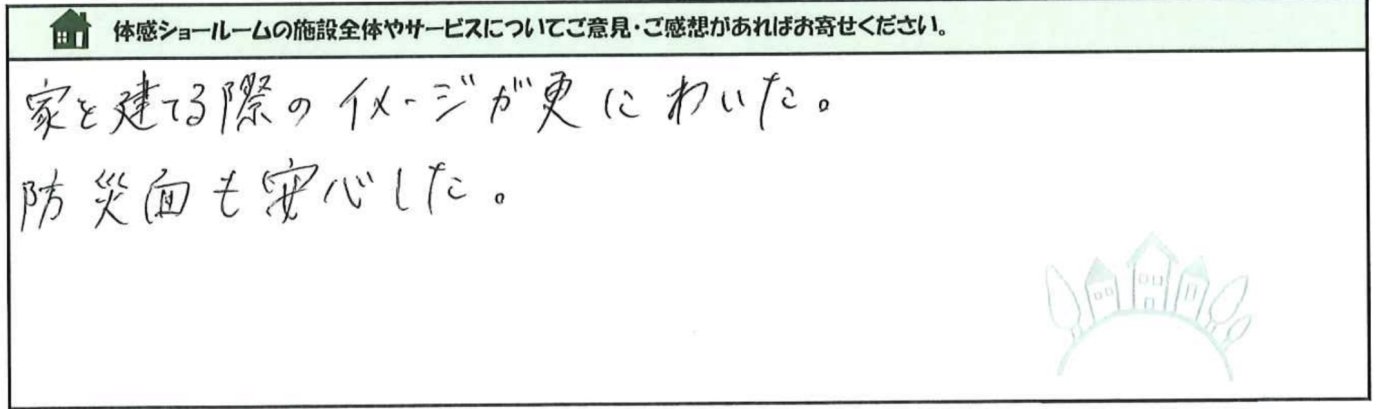 体感ショールームの施設全体やサービスについてご意見・ご感想があればお寄せください。
家を建てる際のイメージが更にわいた。
防災面も安心した。